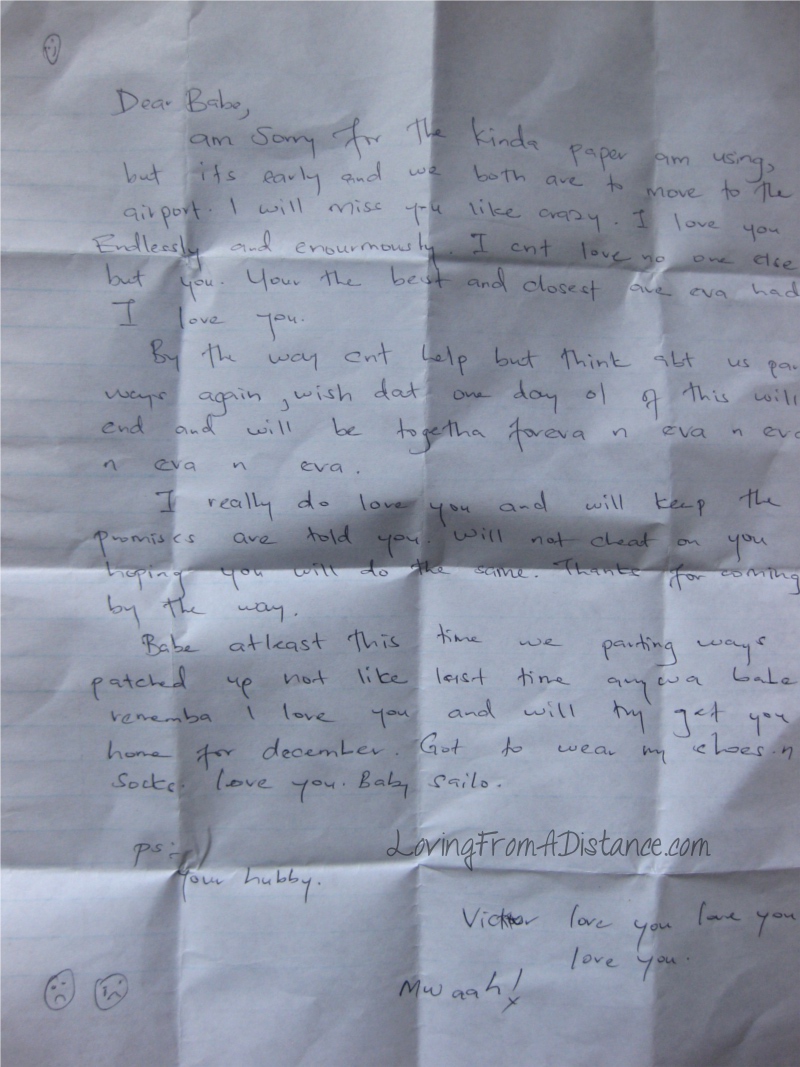 Dear Babe,
am Sorry for the kinda paper am using,
but its early and we both are to move to the
airport. I will miss you like crazy. I love you
Endlessly and enourmously. I cnt love no one else
but you. Your the best and closest ave eva had
I love you.
By the way cnt help but think abt us par
ways again, wish dat one day ol of this will
end and will be togetha foreva n eva n eva
n eva n eva.
I really do love you and will keep the
promises ave told you. Will not cheat on you
hoping you will do the same. Thanks for coming
by the way.
Babe atleast this time we parting ways
patched up not like last time anywa babe
rememba I love you and will try get you
home for december. Got to wear my shoes n
socks. Love you. Baby sailo.
ps:-
Your hubby.
LovingFromADistance.com
Victor love you love you
love you.
Mwaah!
x